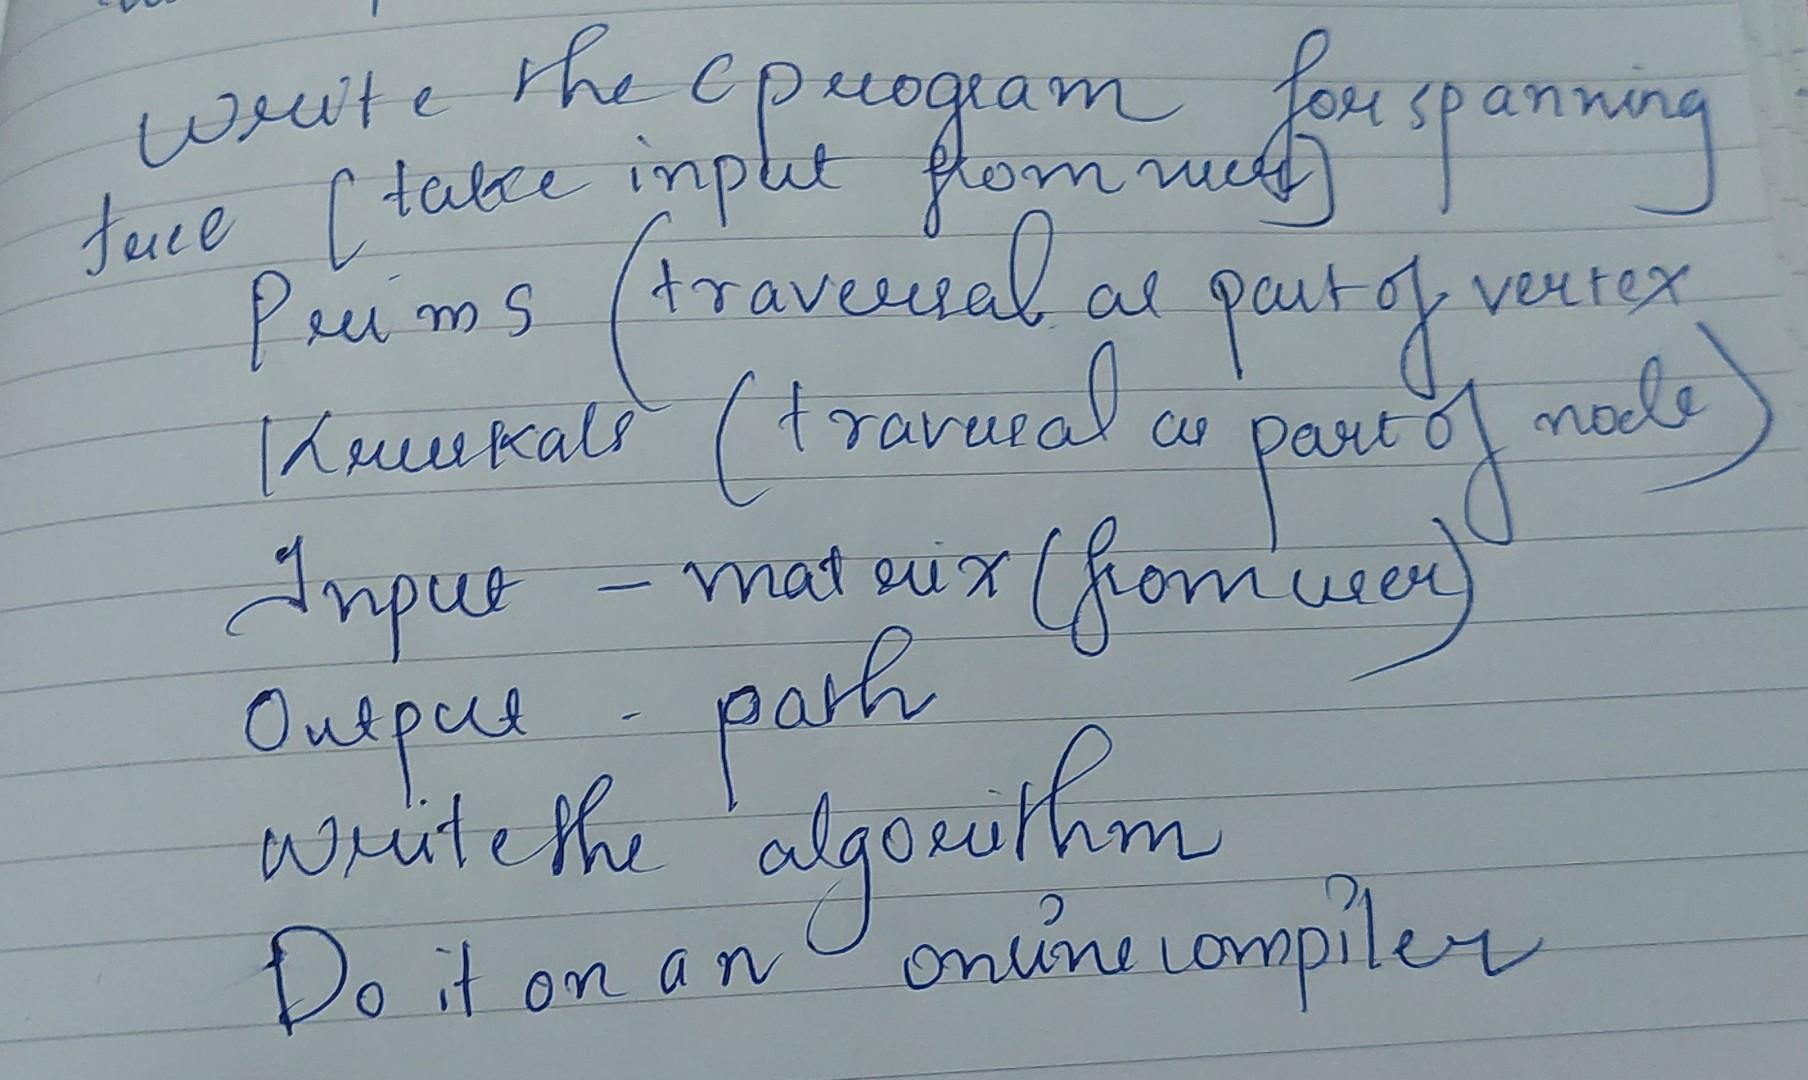 Write the C program for spanning
tree [take input from user]
Prims (traversal as part of vertex
Kruskals (traversal as part of node)
Input - matrix (from user)
Output - path
Write the algorithm
Do it on an online compiler